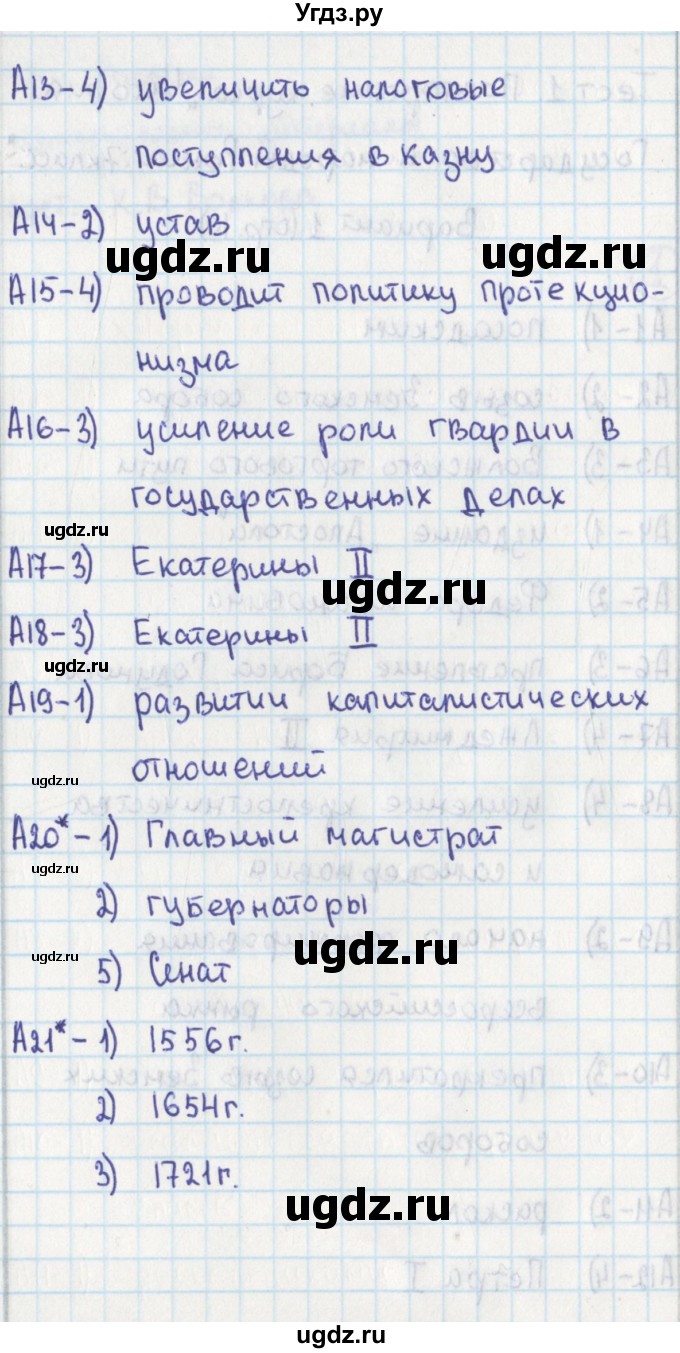 Угдз.ру
А13-4) увеличить налоговые
поступления в казну
А14-2) устав
ugdz.ru ugdz.ru
А15-4) проводит политику протекцио-
низма
А16-3) усиление роли гвардии в
государственных делах
ugdz.ru
А17-3) Екатерины II
ugdz.ru
А18-3) Екатерины II
ugdz.ru
А19-1) развитии капиталистических
отношений
ugdz.ru
А20*-1) Главный магистрат
ugdz.ru
2) губернаторы
ugdz.ru
5) Сенат
А21*-1) 1556г.
2) 1654г.
3) 1721г.
ugdz.ru
ugdz.ru